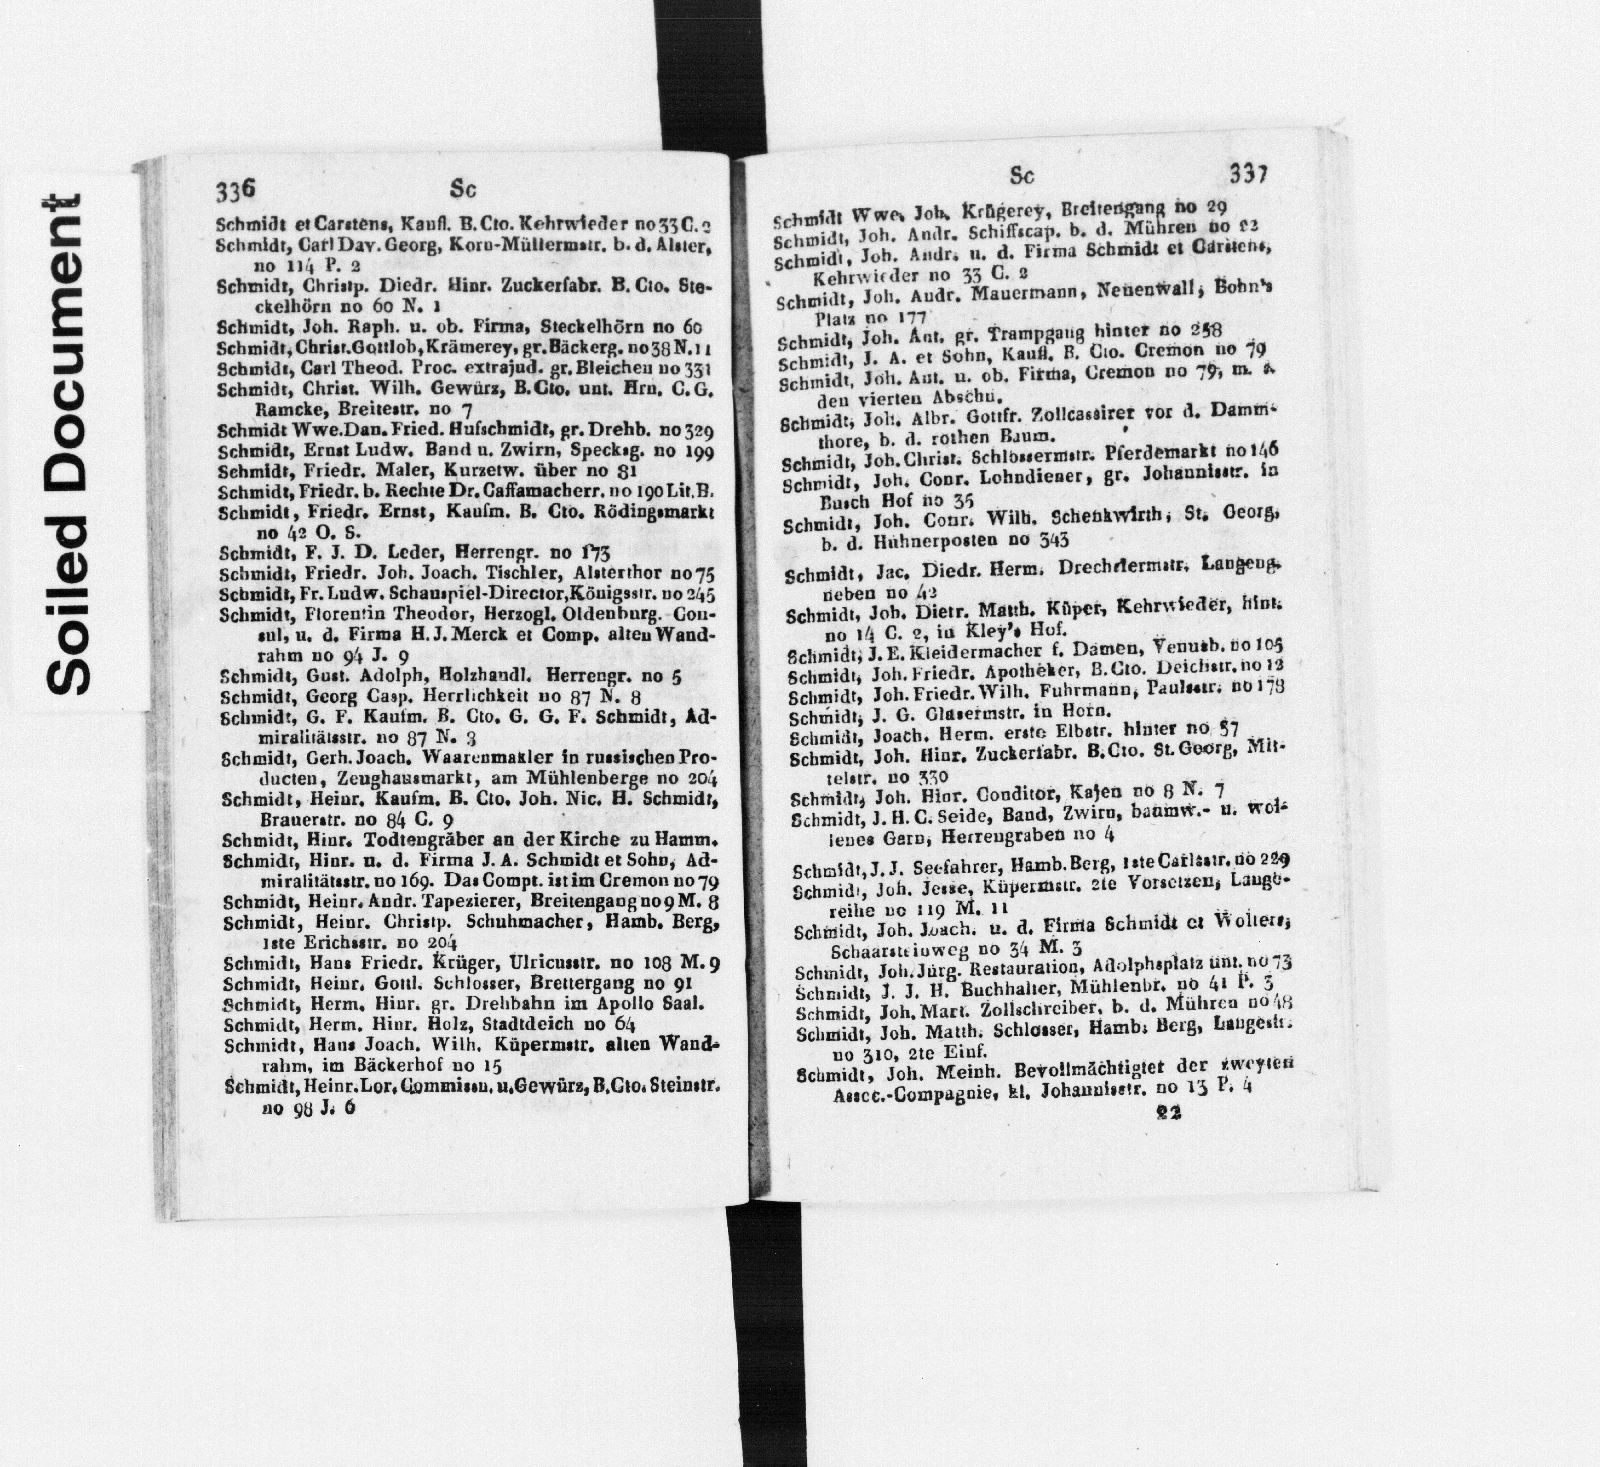 Soiled Document
336 Sc
Schmidt et Carstens, Kaufl. B. Cto. Kehrwieder no 33 C. 2
Schmidt, Carl Dav. Georg, Korn-Müllermstr. b. d. Alster,
no 114 P. 2
Schmidt, Christp. Diedr. Hinr. Zuckerfabr. B. Cto. Ste-
ckelhörn no 60 N. 1
Schmidt, Joh. Raph. u. ob. Firma, Steckelhörn no 60
Schmidt, Christ. Gottlob, Krämerey, gr. Bäckerg. no 38 N. 11
Schmidt, Carl Theod. Proc. extrajud. gr. Bleichen no 331
Schmidt, Christ. Wilh. Gewürz, B. Cto. unt. Hrn. C. G.
Ramcke, Breitestr. no 7
Schmidt Wwe. Dan. Fried. Hufschmidt, gr. Drehb. no 329
Schmidt, Ernst Ludw. Band u. Zwirn, Specksg. no 199
Schmidt, Friedr. Maler, Kurzetw. über no 81
Schmidt, Friedr. b. Rechte Dr. Caffamacherr. no 190 Lit. B.
Schmidt, Friedr. Ernst, Kaufm. B. Cto. Rödingsmarkt
no 42 O. S.
Schmidt, F. J. D. Leder, Herrengr. no 173
Schmidt, Friedr. Joh. Joach. Tischler, Alsterthor no 75
Schmidt, Fr. Ludw. Schauspiel-Director, Königsstr. no 245
Schmidt, Florentin Theodor, Herzogl. Oldenburg. Con-
sul, u. d. Firma H. J. Merck et Comp. alten Wand-
rahm no 94 J. 9
Schmidt, Gust. Adolph, Holzhandl. Herrengr. no 5
Schmidt, Georg Casp. Herrlichkeit no 87 N. 8
Schmidt, G. F. Kaufm. B. Cto. G. G. F. Schmidt, Ad-
miralitätsstr. no 87 N. 3
Schmidt, Gerh. Joach. Waarenmakler in russischen Pro-
ducten, Zeughausmarkt, am Mühlenberge no 204
Schmidt, Heinr. Kaufm. B. Cto. Joh. Nic. H. Schmidt,
Brauerstr. no 84 C. 9
Schmidt, Hinr. Todtengräber an der Kirche zu Hamm.
Schmidt, Hinr. u. d. Firma J. A. Schmidt et Sohn, Ad-
miralitätsstr. no 169. Das Compt. ist im Cremon no 79
Schmidt, Heinr. Andr. Tapezierer, Breitengang no 9 M. 8
Schmidt, Heinr. Christp. Schuhmacher, Hamb. Berg,
1ste Erichsstr. no 204
Schmidt, Hans Friedr. Krüger, Ulricusstr. no 108 M. 9
Schmidt, Heinr. Gottl. Schlosser, Brettergang no 91
Schmidt, Herm. Hinr. gr. Drehbahn im Apollo Saal.
Schmidt, Herm. Hinr. Holz, Stadtdeich no 64
Schmidt, Hans Joach. Wilh. Küpermstr. alten Wand-
rahm, im Bäckerhof no 15
Schmidt, Heinr. Lor. Commissn. u. Gewürz, B. Cto. Steinstr.
no 98 J. 6
Sc 337
Schmidt Wwe. Joh. Krügerey, Breitengang no 29
Schmidt, Joh. Andr. Schiffscap. b. d. Mühren no 22
Schmidt, Joh. Andr. u. d. Firma Schmidt et Carstens,
Kehrwieder no 33 C. 2
Schmidt, Joh. Andr. Mauermann, Neuenwall, Bohn's
Platz no 177
Schmidt, Joh. Ant. gr. Trampgang hinter no 258
Schmidt, J. A. et Sohn, Kaufl. B. Cto. Cremon no 79
Schmidt, Joh. Ant. u. ob. Firma, Cremon no 79, m. s.
den vierten Abschn.
Schmidt, Joh. Albr. Gottfr. Zollcassirer vor d. Damm-
thore, b. d. rothen Baum.
Schmidt, Joh. Christ. Schlossermstr. Pferdemarkt no 146
Schmidt, Joh. Conr. Lohndiener, gr. Johannisstr. in
Busch Hof no 35
Schmidt, Joh. Conr. Wilh. Schenkwirth, St. Georg,
b. d. Hühnerposten no 343
Schmidt, Jac. Diedr. Herm. Drechslermstr. Langeng.
neben no 42
Schmidt, Joh. Dietr. Matth. Küper, Kehrwieder, hint.
no 14 C. 2, in Kley's Hof.
Schmidt, J. E. Kleidermacher f. Damen, Venusb. no 105
Schmidt, Joh. Friedr. Apotheker, B. Cto. Deichstr. no 12
Schmidt, Joh. Friedr. Wilh. Fuhrmann, Paulsstr. no 178
Schmidt, J. G. Glasermstr. in Horn.
Schmidt, Joach. Herm. erste Elbstr. hinter no 57
Schmidt, Joh. Hinr. Zuckerfabr. B. Cto. St. Georg, Mit-
telstr. no 330
Schmidt, Joh. Hinr. Conditor, Kajen no 8 N. 7
Schmidt, J. H. C. Seide, Band, Zwirn, baumw.- u. wol-
lenes Garn, Herrengraben no 4
Schmidt, J. J. Seefahrer, Hamb. Berg, 1ste Carlsstr. no 229
Schmidt, Joh. Jesse, Küpermstr. 2te Vorsetzen, Lange-
reihe no 119 M. 11
Schmidt, Joh. Joach. u. d. Firma Schmidt et Wolters,
Schaarsteinweg no 34 M. 3
Schmidt, Joh. Jürg. Restauration, Adolphsplatz unt. no 73
Schmidt, J. J. H. Buchhalter, Mühlenbr. no 41 P. 3
Schmidt, Joh. Mart. Zollschreiber, b. d. Mühren no 48
Schmidt, Joh. Matth. Schlosser, Hamb. Berg, Langestr.
no 310, 2te Einf.
Schmidt, Joh. Meinh. Bevollmächtigter der zweyten
Assec.-Compagnie, kl. Johannisstr. no 13 P. 4
22